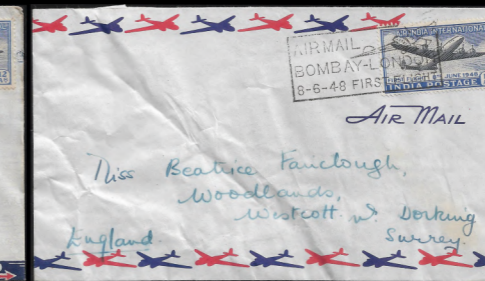 AIR MAIL
BOMBAY-LONDON
8-6-48 FIRST FLIGHT
AIR-INDIA INTERNATIONAL
JUNE 1948
INDIA POSTAGE
AIR MAIL
Miss Beatrice Fairclough,
Woodlands,
Westcott nr. Dorking
Surrey.
England.
12